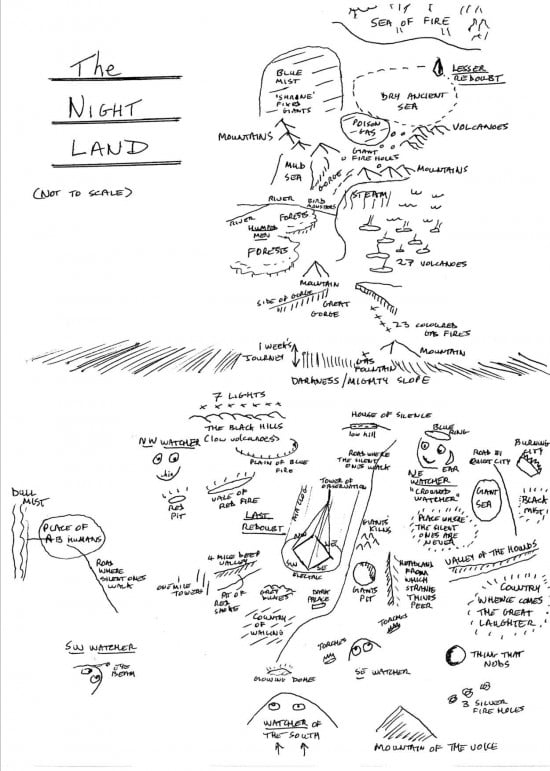 The
NIGHT
LAND
(NOT TO SCALE)
SEA OF FIRE
BLUE
MIST
'SHRANE'
FIXED
GIANTS
LESSER
REDOUBT
DRY ANCIENT
SEA
POISON
GAS
MOUNTAINS
VOLCANOES
GIANT
FIRE HOLES
MILD
SEA
GORGE
MOUNTAINS
STEAM
RIVER
BIRD
MONSTERS
RIVER
FORESTS
HUMPED
MEN
FORESTS
27 VOLCANOES
MOUNTAIN
SIDE OF GORGE
GREAT
GORGE
23 COLOURED
GAS FIRES
1 WEEK'S
JOURNEY
GAS
FOUNTAIN
MOUNTAIN
DARKNESS/MIGHTY SLOPE
7 LIGHTS
THE BLACK HILLS
(low volcanoes)
HOUSE OF SILENCE
low hill
BLUE
RING
NW WATCHER
PLAIN OF BLUE
FIRE
ROAD WHERE
THE SILENT
ONES WALK
EAR
ROAD BY
QUIET CITY
BURNING
CITY
NE
WATCHER
"CROWNED
WATCHER"
RED
PIT
VALE OF
RED FIRE
TOWER OF
OBSERVATION
AIR CLOG
GIANT
SEA
BLACK
MIST
DULL
MIST
PLACE OF
AB HUMANS
LAST
REDOUBT
NW
NE
SW
SE
ELECTRIC
GIANTS
KILNS
PLACE WHERE
THE SILENT
ONES ARE
NEVER
ROAD
WHERE
SILENT ONES
WALK
4 MILE DEEP
VALLEY
ONE MILE
TOWERS
PIT OF
RED
SMOKE
GREY
DUNES
DARK
PALACE
GIANTS
PIT
HEADLAND
FROM
WHICH
STRANGE
THINGS
PEER
VALLEY OF THE HOUNDS
COUNTRY
WHENCE COMES
THE GREAT
LAUGHTER
COUNTRY
OF
WAILING
TORCHES
TORCHES
SW WATCHER
EYE
BEAM
GLOWING DOME
SE WATCHER
THING THAT
NODS
3 SILVER
FIRE HOLES
WATCHER OF
THE SOUTH
MOUNTAIN OF THE VOICE